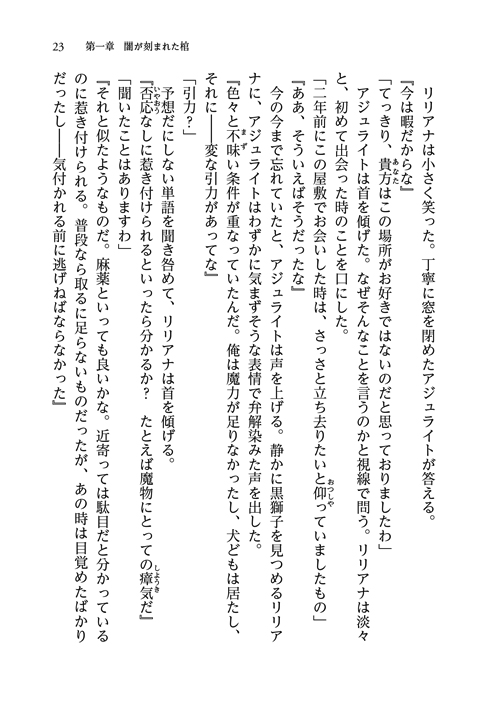 23　第一章　闇が刻まれた棺
リリアナは小さく笑った。丁寧に窓を閉めたアジュライトが答える。
『今は暇だからな』
「てっきり、貴方はこの場所がお好きではないのだと思っておりましたわ」
アジュライトは首を傾げた。なぜそんなことを言うのかと視線で問う。リリアナは淡々
と、初めて出会った時のことを口にした。
「二年前にこの屋敷でお会いした時は、さっさと立ち去りたいと仰っていましたもの」
『ああ、そういえばそうだったな』
今の今まで忘れていたと、アジュライトは声を上げる。静かに黒獅子を見つめるリリア
ナに、アジュライトはわずかに気まずそうな表情で弁解染みた声を出した。
『色々と不味い条件が重なっていたんだ。俺は魔力が足りなかったし、犬どもは居たし、
それに――変な引力があってな』
「引力？」
予想だにしない単語を聞き咎めて、リリアナは首を傾げる。
『否応なしに惹き付けられるといったら分かるか？　たとえば魔物にとっての瘴気だ』
「聞いたことはありますわ」
『それと似たようなものだ。麻薬といっても良いかな。近寄っては駄目だと分かっている
のに惹き付けられる。普段なら取るに足らないものだったが、あの時は目覚めたばかり
だったし――気付かれる前に逃げねばならなかった』